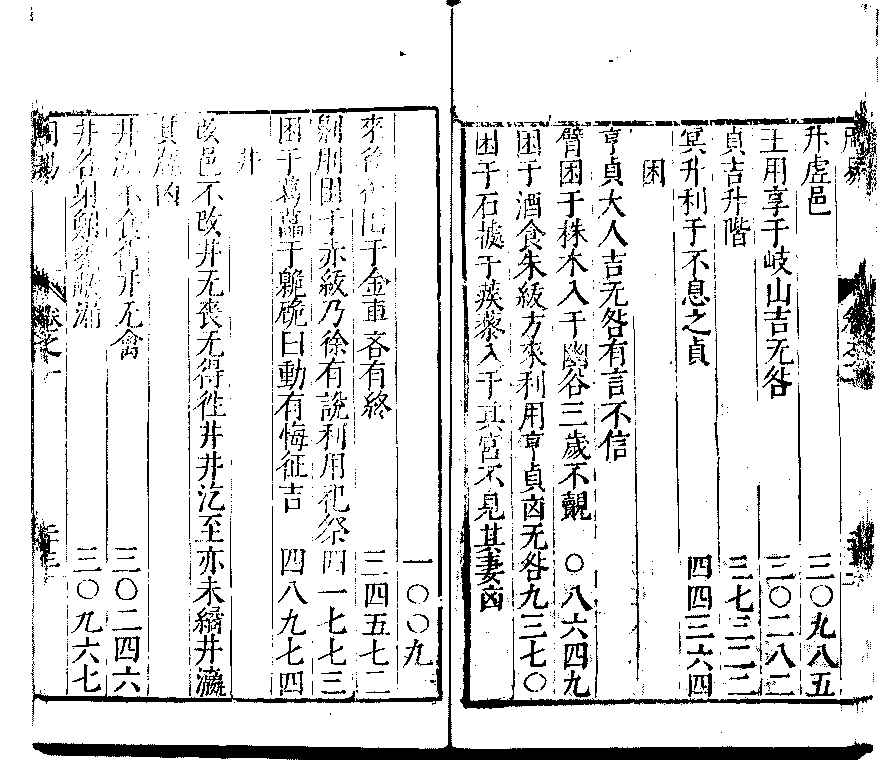 周易
升虛邑 三〇九八五
王用享于岐山吉无咎 三〇二八二
貞吉升階 三七三二二
冥升利于不息之貞 四四三六四
困
亨貞大人吉无咎有言不信
臀困于株木入于幽谷三歲不覿 〇八六四九
困于酒食朱紱方來利用亨貞凶无咎九三七〇
困于石據于蒺藜入于其宮不見其妻凶
一〇〇九
來徐徐困于金車吝有終 三四五七二
劓刖困于赤紱乃徐有說利用祀祭四一七七三
困于葛藟于臲硊曰動有悔征吉 四八九七四
井
改邑不改井无喪无得往井井汔至亦未繘井瀛
其瓶凶
井泥不食舊井无禽 三〇二四六
井谷射鮒甕敝漏 三〇九六七
周易 卷之一